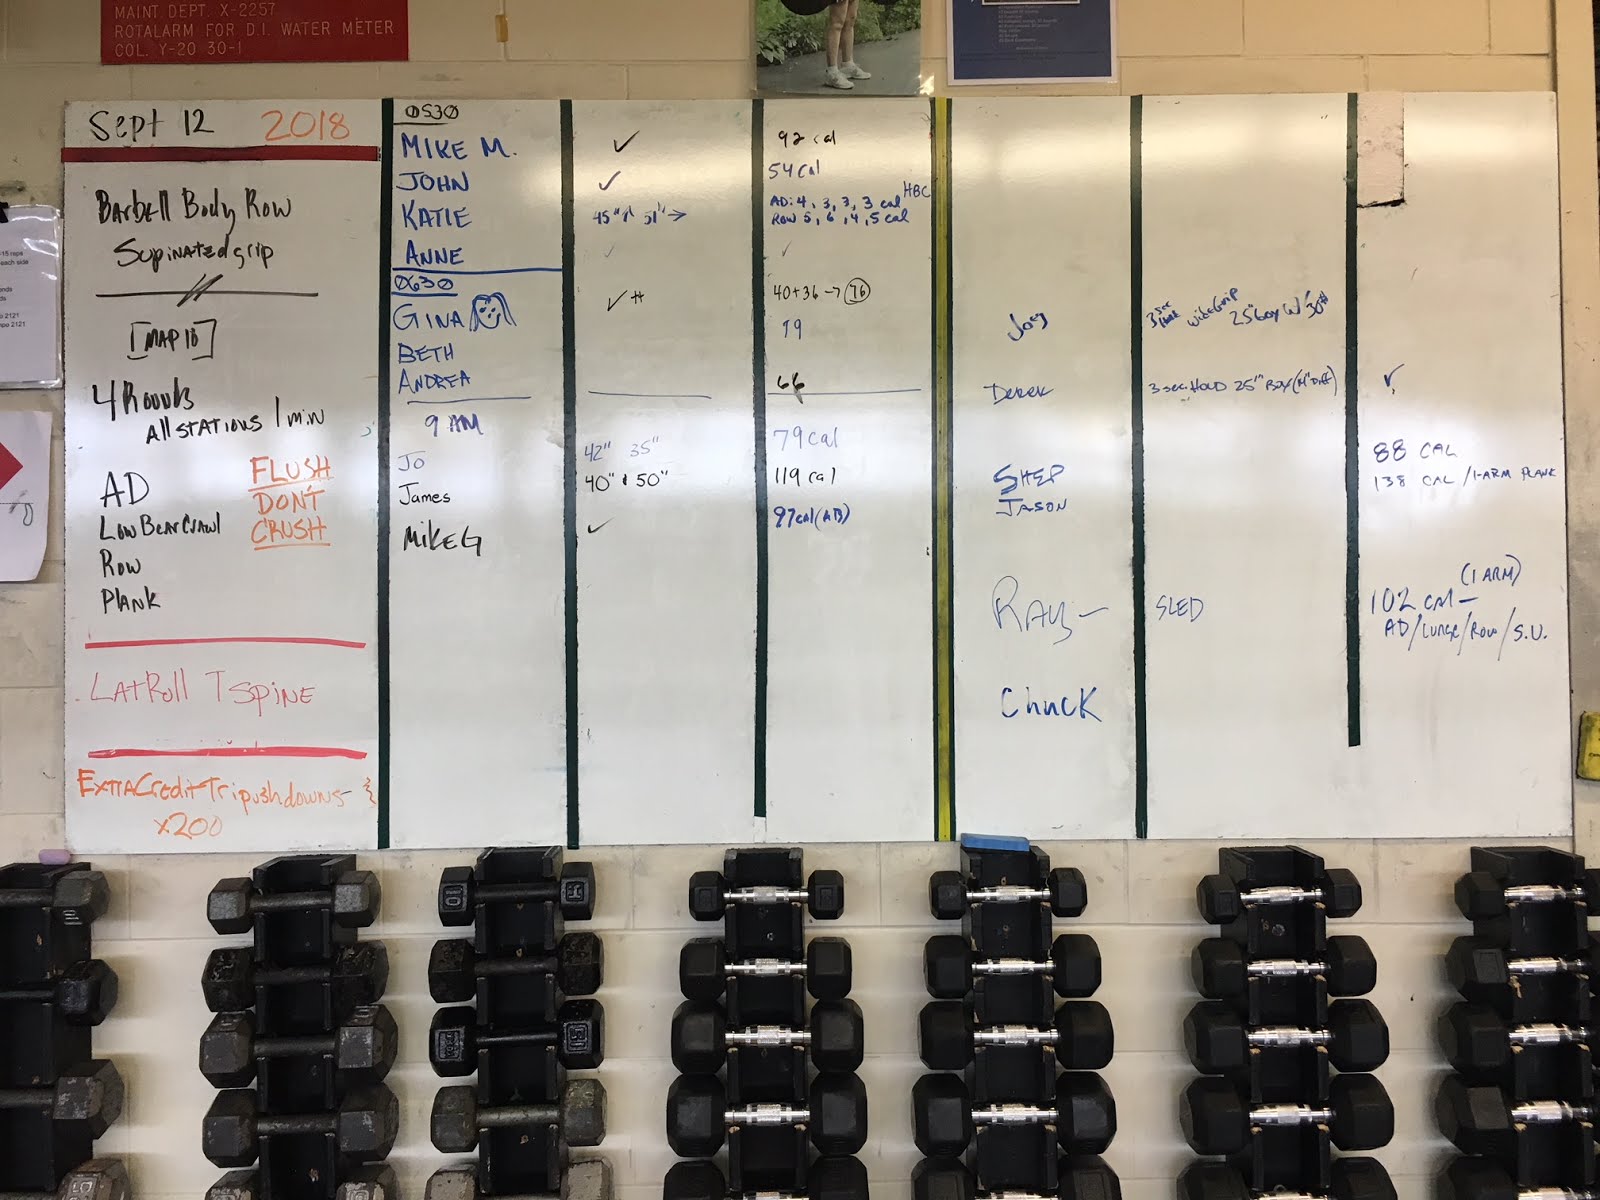 MAINT. DEPT. X-2257
ROTALARM FOR D.I. WATER METER
COL. Y-20 30-1
Sept 12 2018
Barbell Body Row
Supinated grip
[MAP 10]
4 Rounds
All stations 1 min
AD
Low Bear Crawl
Row
Plank
FLUSH
DON'T
CRUSH
Lat Roll T Spine
Extra Credit Tri pushdowns-
x200
0530
MIKE M. ✓ 92 cal
JOHN ✓ 54 Cal
KATIE 45" 51" → AD: 4, 3, 3, 3 cal HBC
Row 5, 6, 4, 5 cal
ANNE ✓ ✓
0630
GINA ✓ # 40+36 → 76
BETH 79
ANDREA 66
9 AM
Jo 42" 35" 79 Cal
James 40" 50" 119 cal
Mike G ✓ 97 cal (AD)
Joey 3 sec wide Grip 25" box w/ 30#
Derek 3 sec. HOLD 25" Box ✓
SHEP 88 CAL
JASON 138 CAL / 1-ARM PLANK
RAY- SLED 102 CAL - (1 ARM)
AD/Lunge/Row/S.U.
Chuck